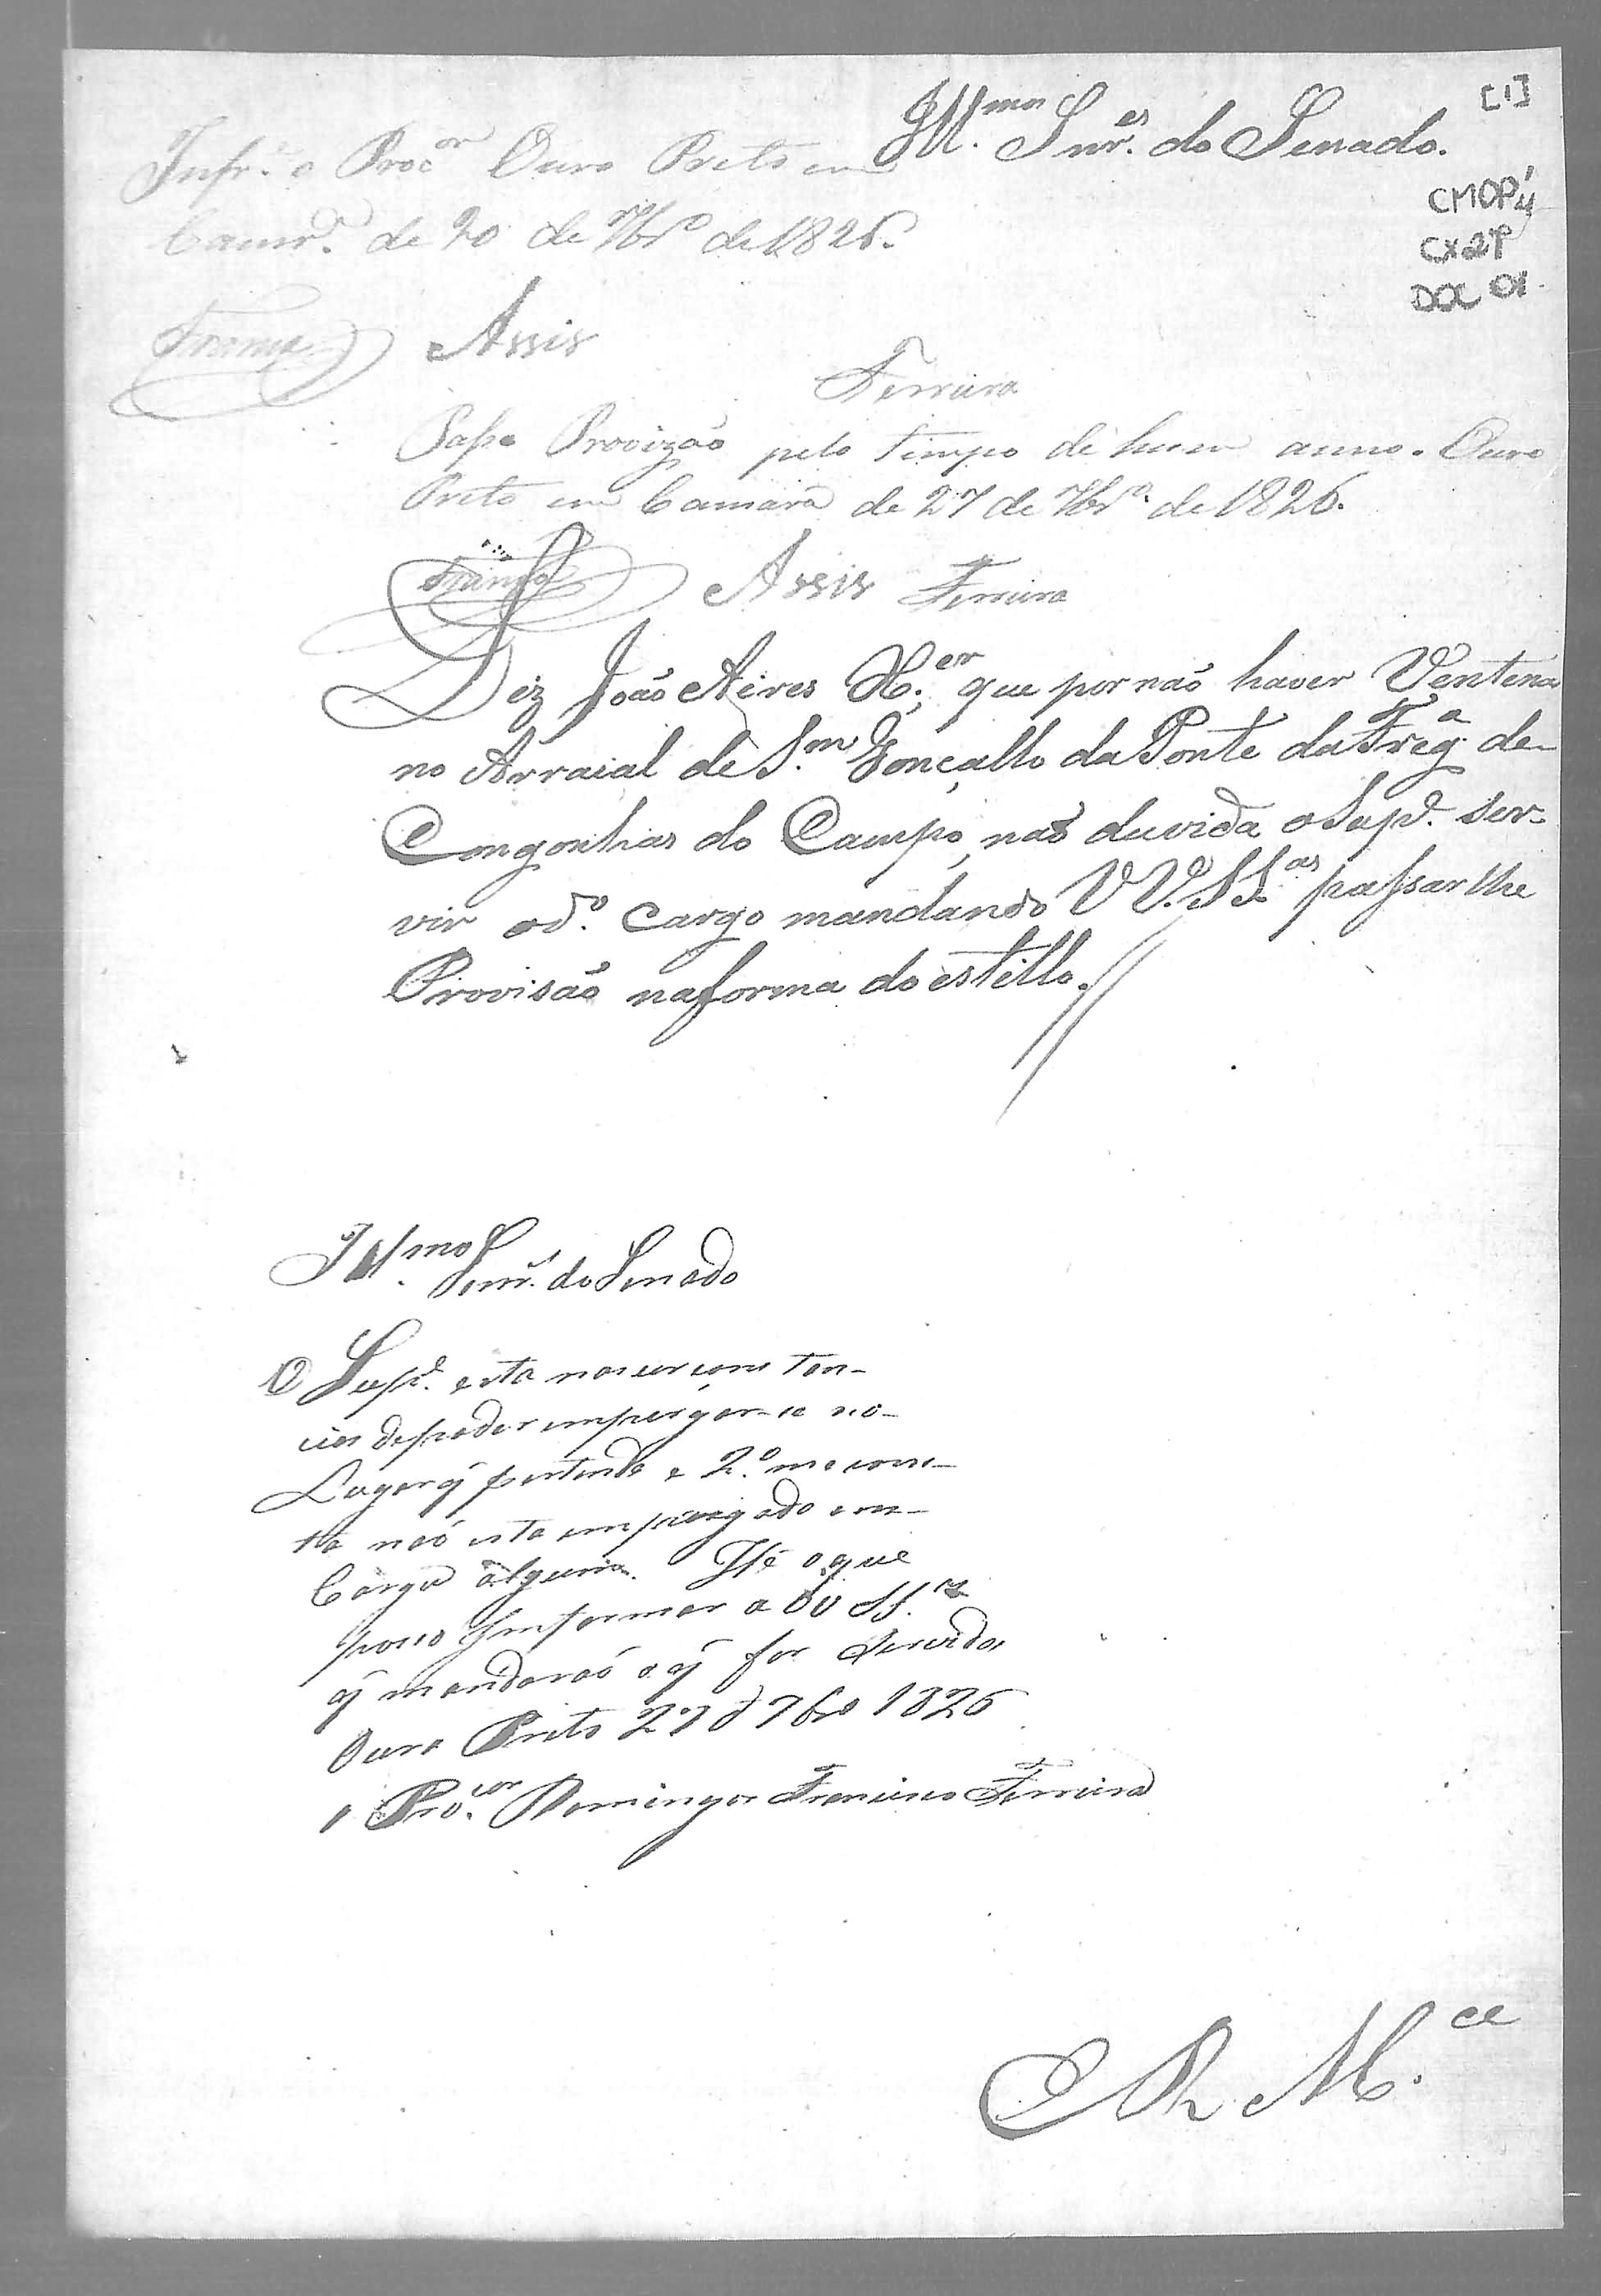 [1]
Ill.mos Snr.es do Senado.
CMOP
CX 27
DOC 01
Infr.e o Proc.or Ouro Preto em
Camr.a de 20 de 7br.o de 1826.
Franco Assis
Ferreira
Passe Provizão pelo tempo de hum anno. Ouro
Preto em Camara de 27 de 7br.o de 1826.
Franco Assis Ferreira
Diz João Aires X.er, que por não haver Ventena
no Arraial de S.m Gonçallo da Ponte da Freg.a de
Congonhas do Campo, não duvida o Sup.e ser-
vir o d.o Cargo mandando VV. SS.as passar lhe
Provisão na forma do estillo.//
Ill.mos Snr.s do Senado
O Sup.e esta nas curcons tan-
cias de poder empregar-se no
Lugar q̃ pertende e 2.o me cons-
ta não esta empregado em
Cargo algum. He o que
posso Informar a VV SS.as
q̃ mandaraó o q̃ for Servidos
Ouro Preto 27 d 7bro 1826
o Pro.cor Domingos Francisco Ferreira
E R M.ce